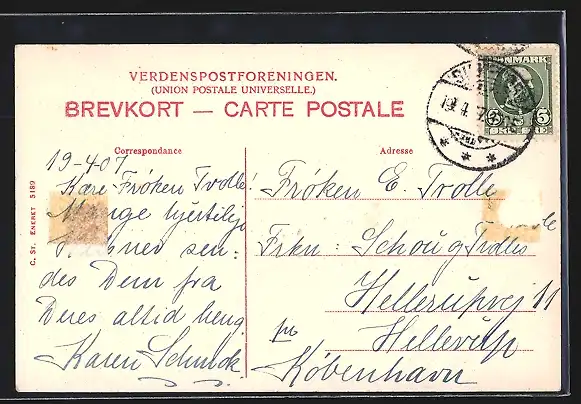 VERDENSPOSTFORENINGEN.
(UNION POSTALE UNIVERSELLE.)
BREVKORT — CARTE POSTALE
Correspondance
Adresse
C. St. Eneret 5189
DANMARK
5 5
19-4 07
Kære Frøken Trolle!
Mange hjertelige
sen:
des Dem fra
Deres altid heng.
Karen Schmok
Frøken E. Trolle
Frkn: Schou g Trolles
Hellerupvej 11
pr Hellerup
København